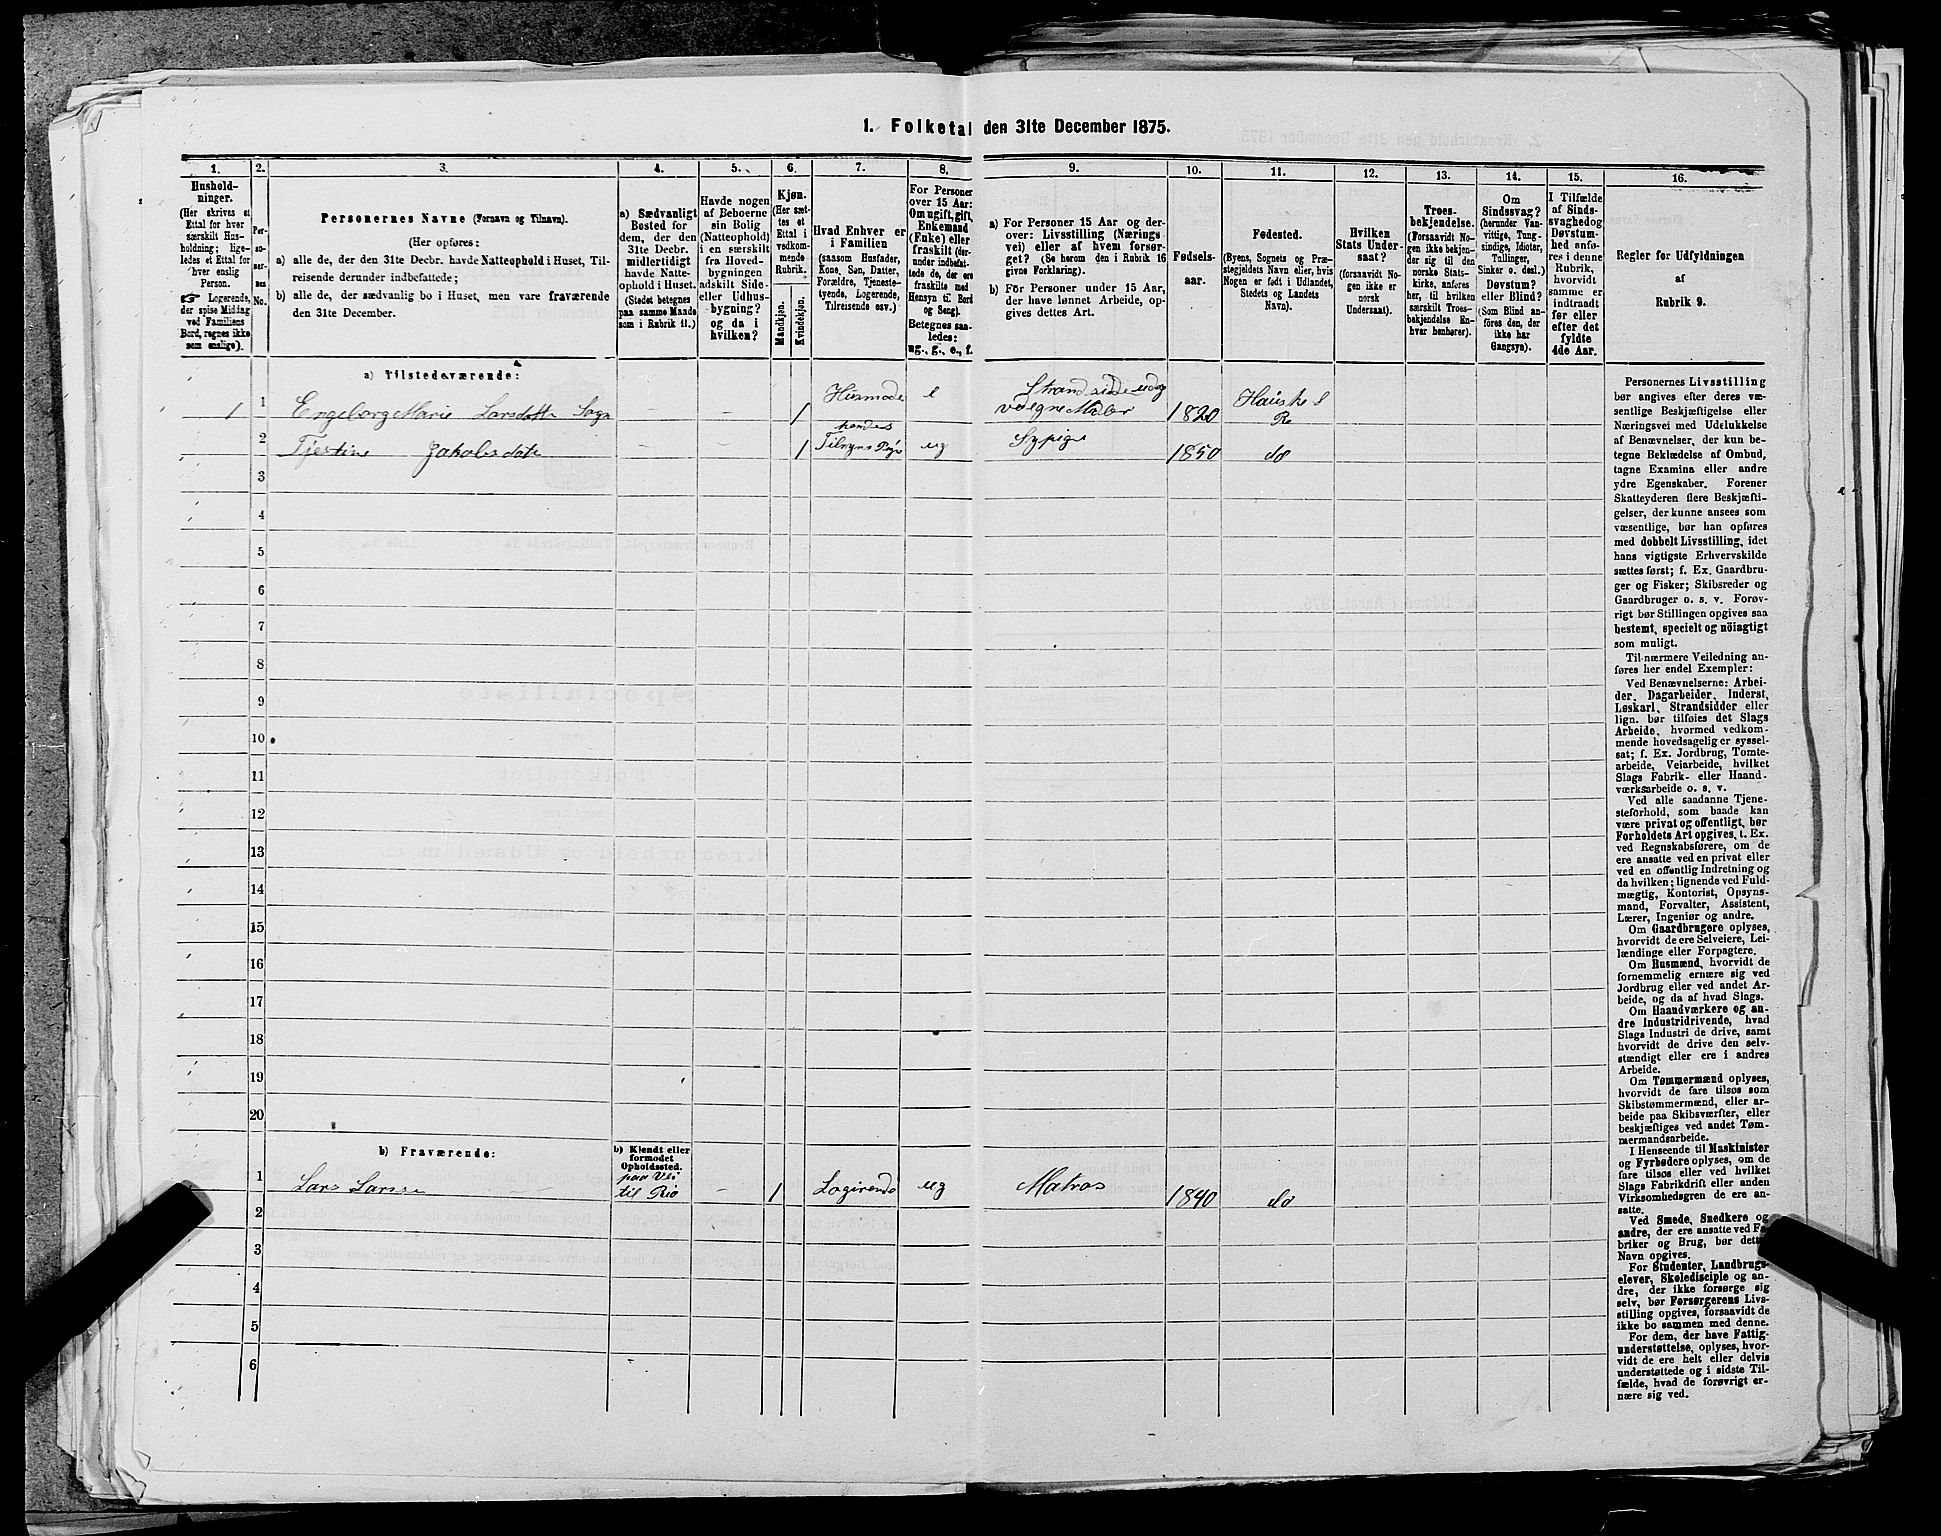 1. Folketal den 31te December 1875.
1.
Hushold-
ninger.
(Her skrives et
Ettal for hver
særskilt Hus-
holdning; lige-
ledes et Ettal for
hver enslig
Person.
Logerende,
der spise Middag
ved Familiens
Bord, regnes ikke
som enslige).
2.
Per-
so-
ner-
nes
No.
3.
Personernes Navne (Fornavn og Tilnavn).
(Her opføres:
a) alle de, der den 31te Decbr. havde Natteophold i Huset, Til-
reisende derunder indbefattede;
b) alle de, der sædvanlig bo i Huset, men vare fraværende
den 31te December.
4.
a) Sædvanligt
Bosted for
dem, der den
31te Decbr.
midlertidigt
havde Natte-
ophold i Huset.
(Stedet betegnes
paa samme Maade
som i Rubrik 11.)
5.
Havde nogen
af Beboerne
sin Bolig
(Natteophold)
i en særskilt
fra Hoved-
bygningen
adskilt Side-
eller Udhus-
bygning?
og da i
hvilken?
6.
Kjøn.
(Her sæt-
tes et
Ettal i
vedkom-
mende
Rubrik.
Mandkjøn.
Kvindekjøn.
7.
Hvad Enhver er
i Familien
(saasom Husfader,
Kone, Søn, Datter,
Forældre, Tjeneste-
tyende, Logerende,
Tilreisende osv.)
8.
For Personer
over 15 Aar:
Om ugift, gift,
Enkemand
(Enke) eller
fraskilt (der-
under indbefat-
tede de, der ere
fraskilte med
Hensyn til Bord
og Seng).
Betegnes saa-
ledes:
ug., g., e., f.
9.
a) For Personer 15 Aar og der-
over: Livsstilling (Nærings
vei) eller af hvem forsør-
get? (Se herom den i Rubrik 16
givne Forklaring).
b) For Personer under 15 Aar,
der have lønnet Arbeide, op-
gives dettes Art.
10.
Fødsels-
aar.
11.
Fødested.
(Byens, Sognets og Præ-
stegjeldets Navn eller, hvis
Nogen er født i Udlandet,
Stedets og Landets
Navn).
12.
Hvilken
Stats Under-
saat?
(forsaavidt No-
gen ikke er
norsk
Undersaat).
13.
Troes-
bekjendelse.
(Forsaavidt No-
gen ikke bekjen-
der sig til den
norske Stats-
kirke, anføres
her, til hvilken
særskilt Troes-
bekjendelse En-
hver henhører).
14.
Om
Sindssvag?
(herunder Van-
vittige, Tung-
sindige, Idioter,
Tullinger,
Sinker o. desl.)
Døvstum?
eller Blind?
(Som Blind an-
føres den, der
ikke har
Gangsyn).
15.
I Tilfælde
af Sinds-
svaghed og
Døvstum-
hed anfø-
res i denne
Rubrik,
hvorvidt
samme er
indtraadt
før eller
efter det
fyldte
4de Aar.
16.
Regler for Udfyldningen
af
Rubrik 9.
a) Tilstedeværende:
1 1 Engeborg Marie Larsdatte Sagn – – 1 Husmode e Strandsidde
vœgne 1820 Hauske S
Re
2 Tjestine Jakobsdate – – 1 Tilsyns ug Sypige 1850 do
3
4
5
6
7
8
9
10
11
12
13
14
15
16
17
18
19
20
b) Fraværende:
b) Kjendt eller
formodet
Opholdssted.
1 Lars Larsse paa Vei
til Rio – 1 Logirende ug Matros 1840 do
2
3
4
5
6
Personernes Livsstilling
bør angives efter deres væ-
sentlige Beskjæftigelse eller
Næringsvei med Udelukkelse
af Benævnelser, der kun be-
tegne Beklædelse af Ombud,
tagne Examina eller andre
ydre Egenskaber. Forener
Skatteyderen flere Beskjæfti-
gelser, der kunne ansees som
væsentlige, bør han opføres
med dobbelt Livsstilling, idet
hans vigtigste Erhvervskilde
sættes først; f. Ex. Gaardbru-
ger og Fisker; Skibsreder og
Gaardbruger o. s. v. Forøv-
rigt bør Stillingen opgives saa
bestemt, specielt og nöiagtigt
som muligt.
Til nærmere Veiledning an-
føres her endel Exempler:
Ved Benævnelserne: Arbei-
der, Dagarbeider, Inderst,
Løskarl, Strandsidder eller
lign. bør tilføies det Slags
Arbeide, hvormed vedkom-
mende hovedsagelig er syssel-
sat; f. Ex. Jordbrug, Tomte-
arbeide, Veiarbeide, hvilket
Slags Fabrik- eller Haand-
værksarbeide o. s. v.
Ved alle saadanne Tjene-
steforhold, som baade kan
være privat og offentligt, bør
Forholdets Art opgives, t. Ex.
ved Regnskabsførere, om de
ere ansatte ved en privat eller
ved en offentlig Indretning og
da hvilken; lignende ved Fuld-
mægtig, Kontorist, Opsyns-
mand, Forvalter, Assistent,
Lærer, Ingeniør og andre.
Om Gaardbrugere oplyses,
hvorvidt de ere Selveiere, Lei-
lændinge eller Forpagtere.
Om Husmænd, hvorvidt de
fornemmelig ernære sig ved
Jordbrug eller ved andet Ar-
beide, og da af hvad Slags.
Om Haandværkere og an-
dre Industridrivende, hvad
Slags Industri de drive, samt
hvorvidt de drive den selv-
stændigt eller ere i andres
Arbeide.
Om Tømmermænd oplyses,
hvorvidt de fare tilsøs som
Skibstømmermænd, eller ar-
beide paa Skibsværfter, eller
beskjæftiges ved andet Tøm-
mermandsarbeide.
I Henseende til Maskinister
og Fyrbødere oplyses, om de
fare tilsøs eller ved hvilket
Slags Fabrikdrift eller anden
Virksomhedsgren de ere an-
satte.
Ved Smede, Snedkere og
andre, der ere ansatte ved Fa-
briker og Brug, bør dette
Navn opgives.
For Studenter, Landbrugs-
elever, Skoledisciple og an-
dre, der ikke forsørge sig
selv, bør Forsørgerens Livs-
stilling opgives, forsaavidt de
ikke bo sammen med denne.
For dem, der have Fattig-
understøttelse, oplyses, hvor-
vidt de ere helt eller delvis
understøttede og i sidste Til-
fælde, hvad de forøvrigt er-
nære sig ved.